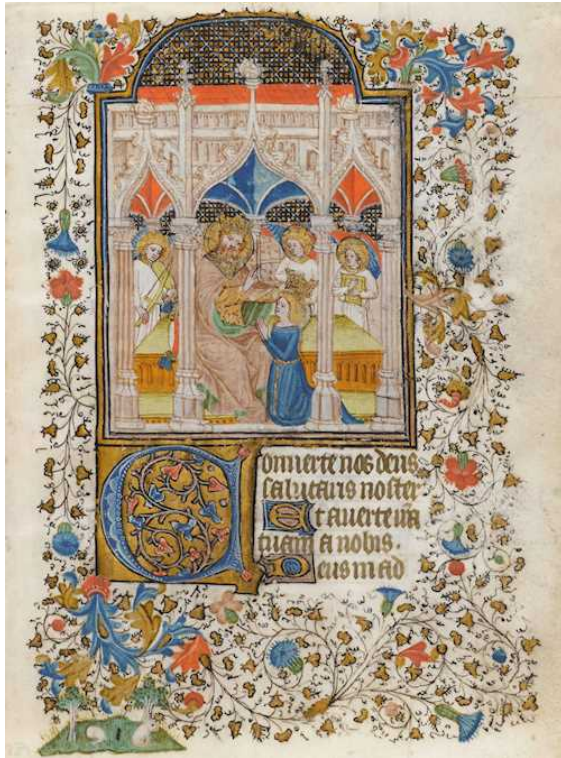 Conuerte nos deus
salutaris noster.
Et auerte iram
tuam a nobis.
Deus in ad